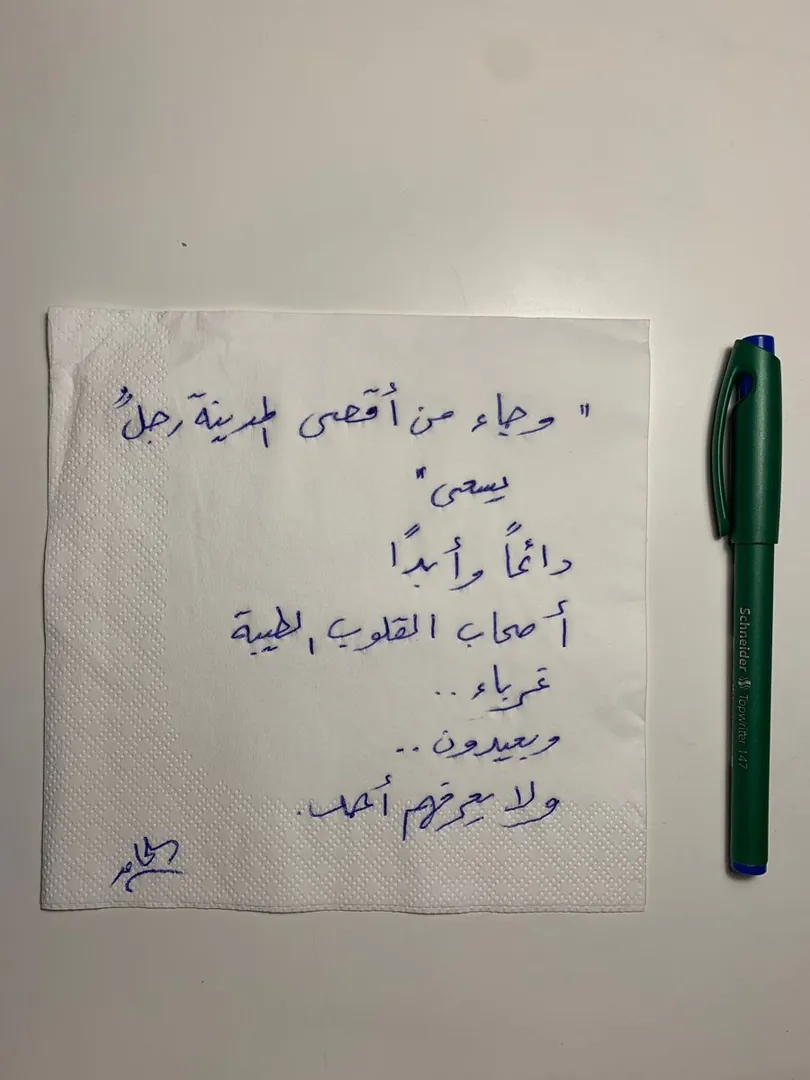 " وجاء من أقصى المدينة رجلٌ
يسعى"
دائماً وأبداً
أصحاب القلوب الطيبة
غرباء ..
وبعيدون ..
ولا يعرفهم أحد.
Schneider Topwriter 147